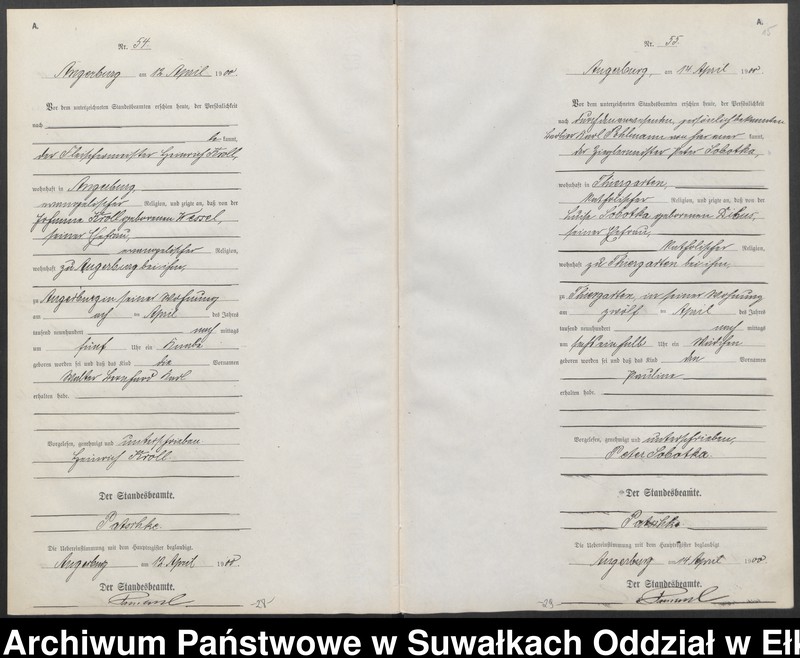 A.
Nr. 54.
Angerburg am 12. April 1900
Vor dem unterzeichneten Standesbeamten erschien heute, der Persönlichkeit
nach
be kannt,
der Fleischermeister Heinrich Kroll,
wohnhaft in Angerburg,
evangelischer Religion, und zeigte an, daß von der
Kroll geborenen Wessel,
seiner Ehefrau,
evangelischer Religion,
wohnhaft zu Angerburg bei ihm,
zu Angerburg in seiner Wohnung
am acht ten April des Jahres
tausend neunhundert nach mittags
um fünf Uhr ein Knabe
geboren worden sei und daß das Kind die Vornamen
Walter Bernhard Karl
erhalten habe.
Vorgelesen, genehmigt und unterschrieben
Heinrich Kroll.
Der Standesbeamte.
Patschke.
Die Uebereinstimmung mit dem Hauptregister beglaubigt.
Angerburg am 12. April 1900.
Der Standesbeamte.
-28-
A.
Nr. 55.
Angerburg, am 14 April 1900.
Vor dem unterzeichneten Standesbeamten erschien heute, der Persönlichkeit
nach durch den anwesenden, persönlich bekannten
Karl Pohlmann von hier aner kannt,
der Zieglermeister Peter Sobotka,
wohnhaft in Thiergarten,
katholischer Religion, und zeigte an, daß von der
Luise Sobotka geborenen
seiner Ehefrau,
katholischer Religion,
wohnhaft zu Thiergarten bei ihm,
zu Thiergarten, in seiner Wohnung
am zwölf ten April des Jahres
tausend neunhundert nach mittags
um sechseinhalb Uhr ein Mädchen
geboren worden sei und daß das Kind den Vornamen
Pauline
erhalten habe.
Vorgelesen, genehmigt und unterschrieben,
Peter Sobotka.
Der Standesbeamte.
Patschke
Die Uebereinstimmung mit dem Hauptregister beglaubigt
Angerburg am 14 April 1900
Der Standesbeamte.
-29-
Archiwum Państwowe w Suwałkach Oddział w Ełk